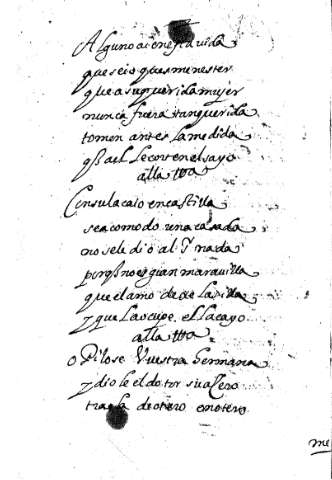 Alguno ai en esta vida
que se io ques menester
que a su querida muger
nunca fuera tan querida
tomen antes la medida
q̃ a el le corten el sayo
alla ba
En su la caio en castilla
se acomodo una casada
no se le dio al pº nada
porq̃ no es gran maravilla
que el amo de de la silla
y que la ocupe el lacayo
alla ba
o Pilose Vuestra hermana
y diole el dotor su acero
tra de otero en otero
me